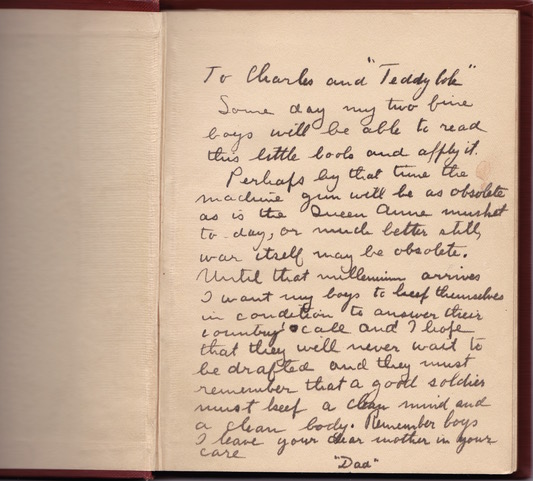 To Charles and "Teddy bok"
Some day my two fine
boys will be able to read
this little book and apply it.
Perhaps by that time the
machine gun will be as obsolete
as is the Queen Anne musket
to-day, or much better still,
war itself may be obsolete.
Until that millennium arrives
I want my boys to keep themselves
in condition to answer their
country's call and I hope
that they will never wait to
be drafted and they must
remember that a good soldier
must keep a clean mind and
a clean body. Remember boys
I leave your dear mother in your
care
"Dad"